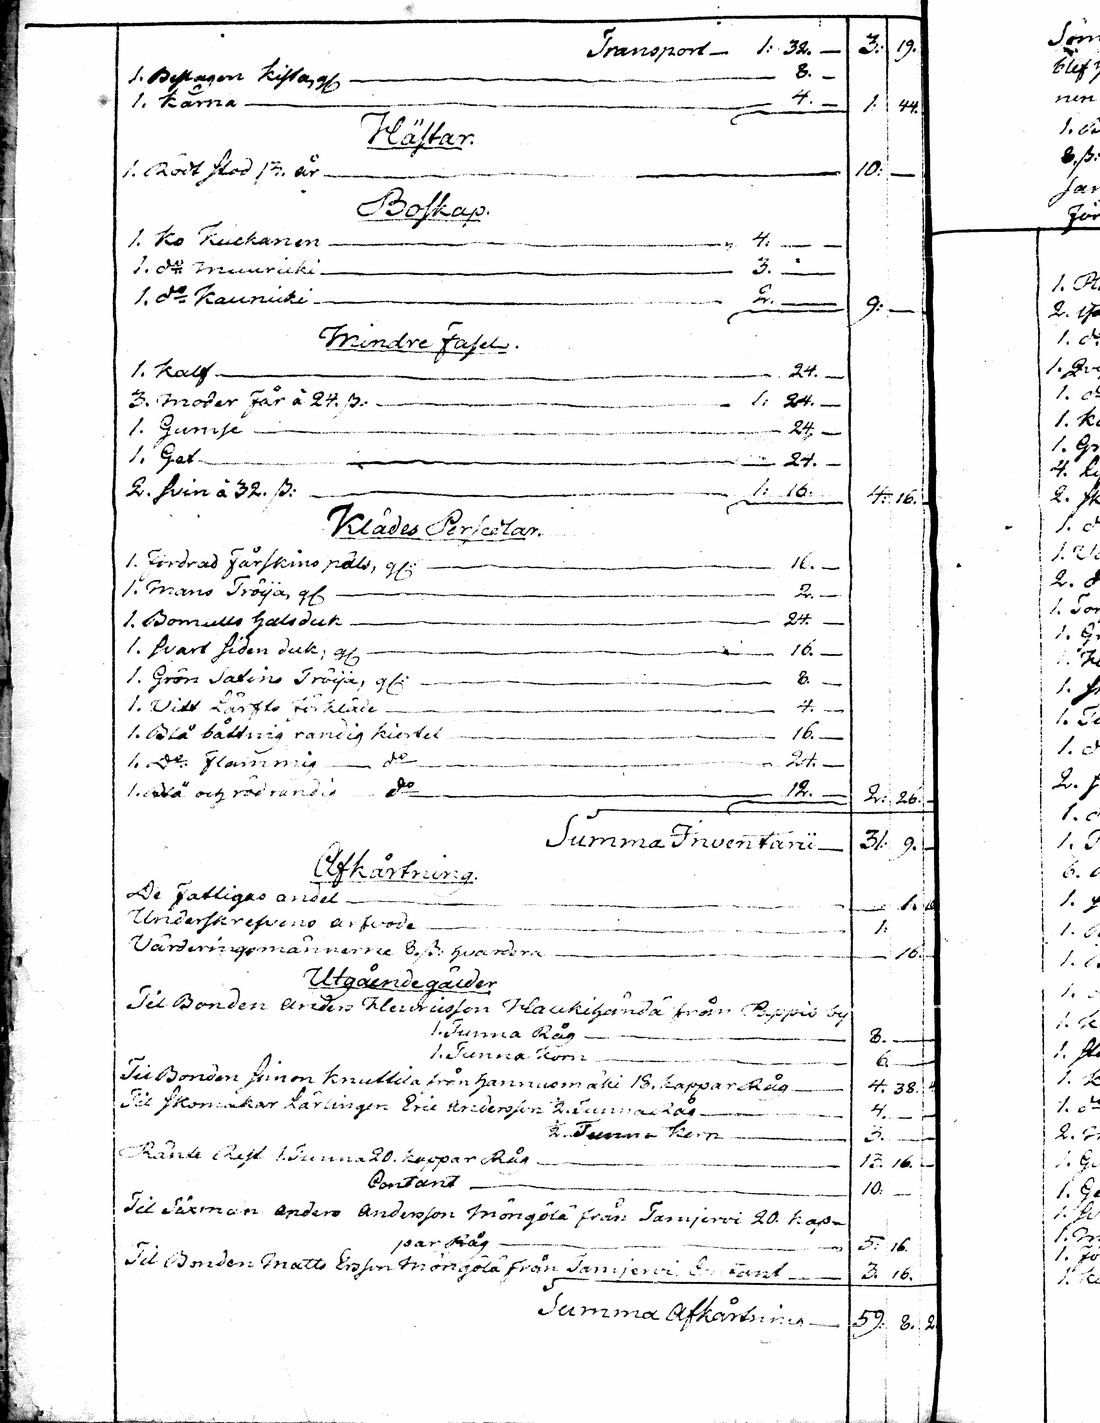 Transport — 1: 32. — 3: 19.
1. Beslagen kista, gl — 8. —
1. Kärna — 4. — 1: 44.
Hästar.
1. Rödt stod 17. år — 10: —
Boskap.
1. Ko Kuckanen — 4. —
1. do Muuricki — 3. —
1. do Kaunicki — 2. — 9: —
Mindre Fäset.
1. Kalf — 24. —
3. Moder Får à 24. ß: — 1: 24. —
1. Gumse — 24. —
1. Get — 24. —
2. Svin à 32. ß: — 1: 16. 4: 16.
Klädes Persedlar.
1. Fordrad Fårskins päls, gl: — 16. —
1. Mans Tröija, gl — 2. —
1. Bomulls halsduk — 24. —
1. Svart Siden duk, gl — 16. —
1. Grön Satins Tröija, gl: — 8. —
1. Vitt Lärfts förkläde — 4. —
1. Blå båttnig randig kiortel — 16. —
1. Do Flammig — do — 24. —
1. Blå och röd randig do — 12. — 2: 26.
Summa Inventarii — 31: 9. —
Afkårtning.
De Fattigas andel — 1.
Underskrefvens arfvode — 1:
Värderingsmännerne 8. ß: hvardera — 16. —
Utgående gälder
Til Bonden Anders Henricsson Haukihanda från Peppis by
1. Tunna Råg — 8. —
1. Tunna Korn — 6. —
Til Bonden Simon Knuttila från Hannusmäki 18. kappar Råg — 4: 38.
Til Skomakar Lärlingen Eric Andersson ½ Tunna Råg — 4. —
½ Tunna Korn — 3. —
Ränte Rest 1. Tunna 20. kappar Råg — 13: 16. —
Contant — 10: —
Til Säxman Anders Andersson Möngölä från Tamjervi 20. kap-
par Råg — 5: 16.
Til Bonden Matts Ersson Möngölä från Tamjervi Contant — 3: 16.
Summa Afkårtning — 59: 8. 2